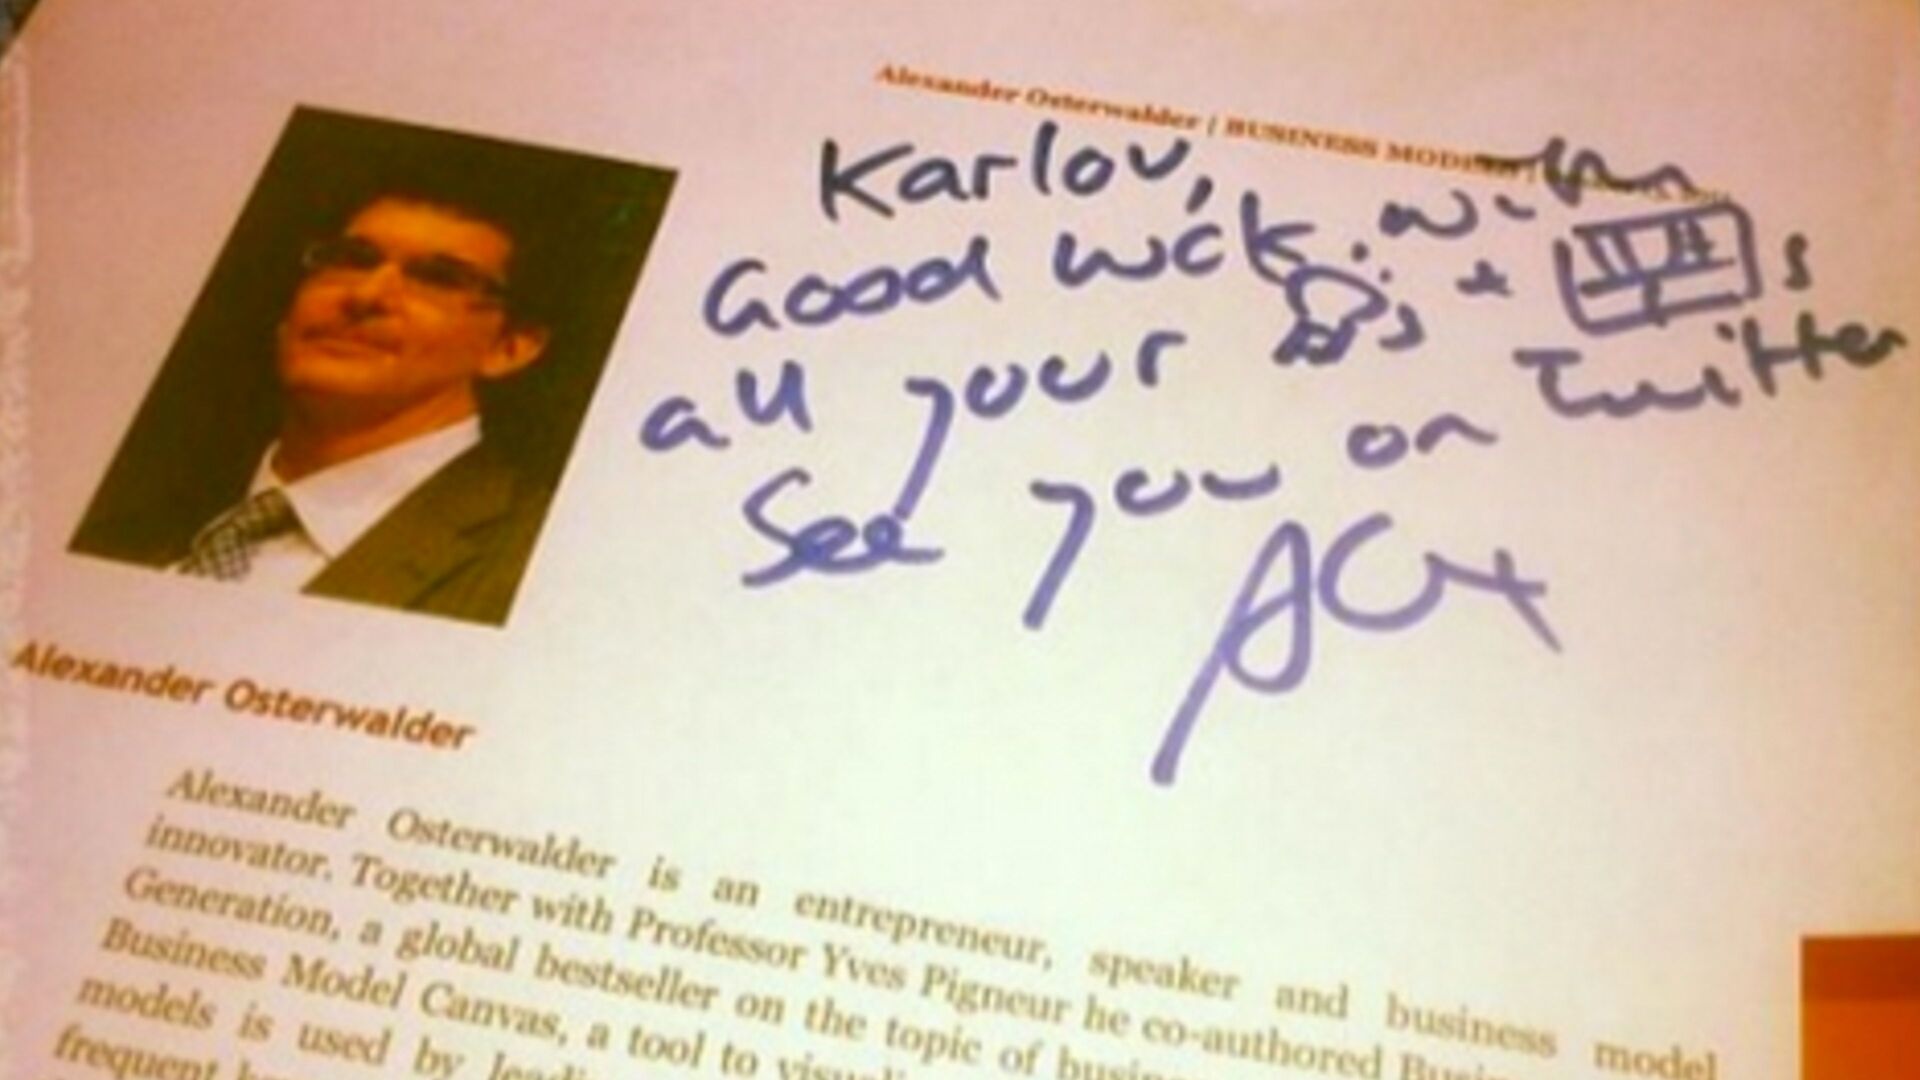 Alexander Osterwalder | BUSINESS
Karlov,
Good luck with
all your + s
See you on Twitter
Alex
Alexander Osterwalder
Alexander Osterwalder is an entrepreneur, speaker and business model
innovator. Together with Professor Yves Pigneur he co-authored
Generation, a global bestseller on the topic of
Business Model Canvas, a tool to
models is used by
frequent